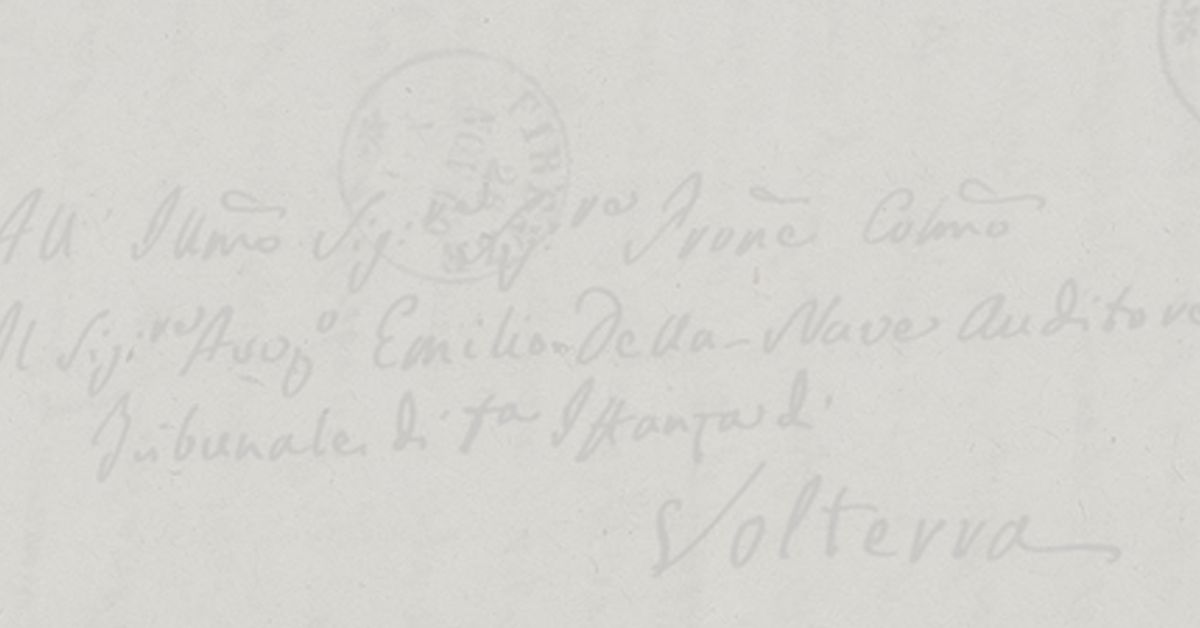 All' Illmo Sig.r Sig.re Prone Colmo
Il Sig.re Avvo Emilio Della-Nave Auditore
Tribunale di Pa Istanza di
Volterra